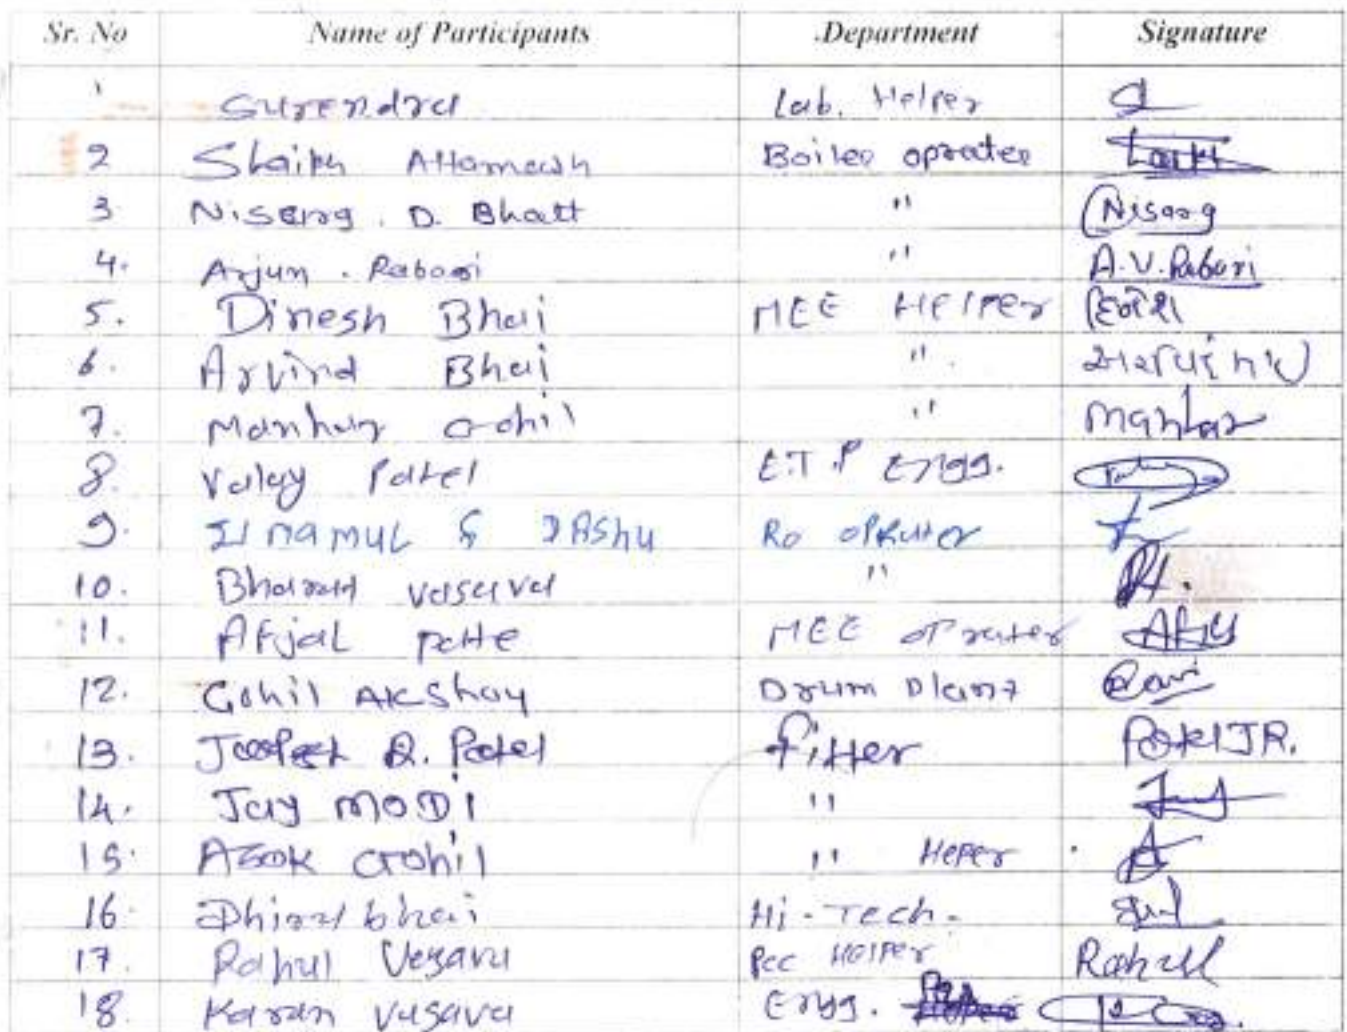 Sr. No Name of Participants Department Signature
1 Surendra Lab. Helper
2 Shaikh Altamash Boiler oprater
3 Nisarg . D. Bhatt " Nisarg
4. Arjun . Rabari " A.V.Rabari
5. Dinesh Bhai MEE HElPEr દિનેશ
6. Arvind Bhai "
7. Manhar Gohil " Manhar
8. Valay Patel E.T.P Engg.
9. INAMUL Ro oprator
10. Bharat vasava "
11. Afjal MEE oprater
12. Gohil Akshay Drum Plant
13. R. Patel Fitter Patel J R.
14. Jay MODI "
15. Asok Gohil " Heper
16. Dhiraj bhai Hi-Tech.
17. Rahul Vasava Pcc Helper Rahul
18. Karan vasava Engg.